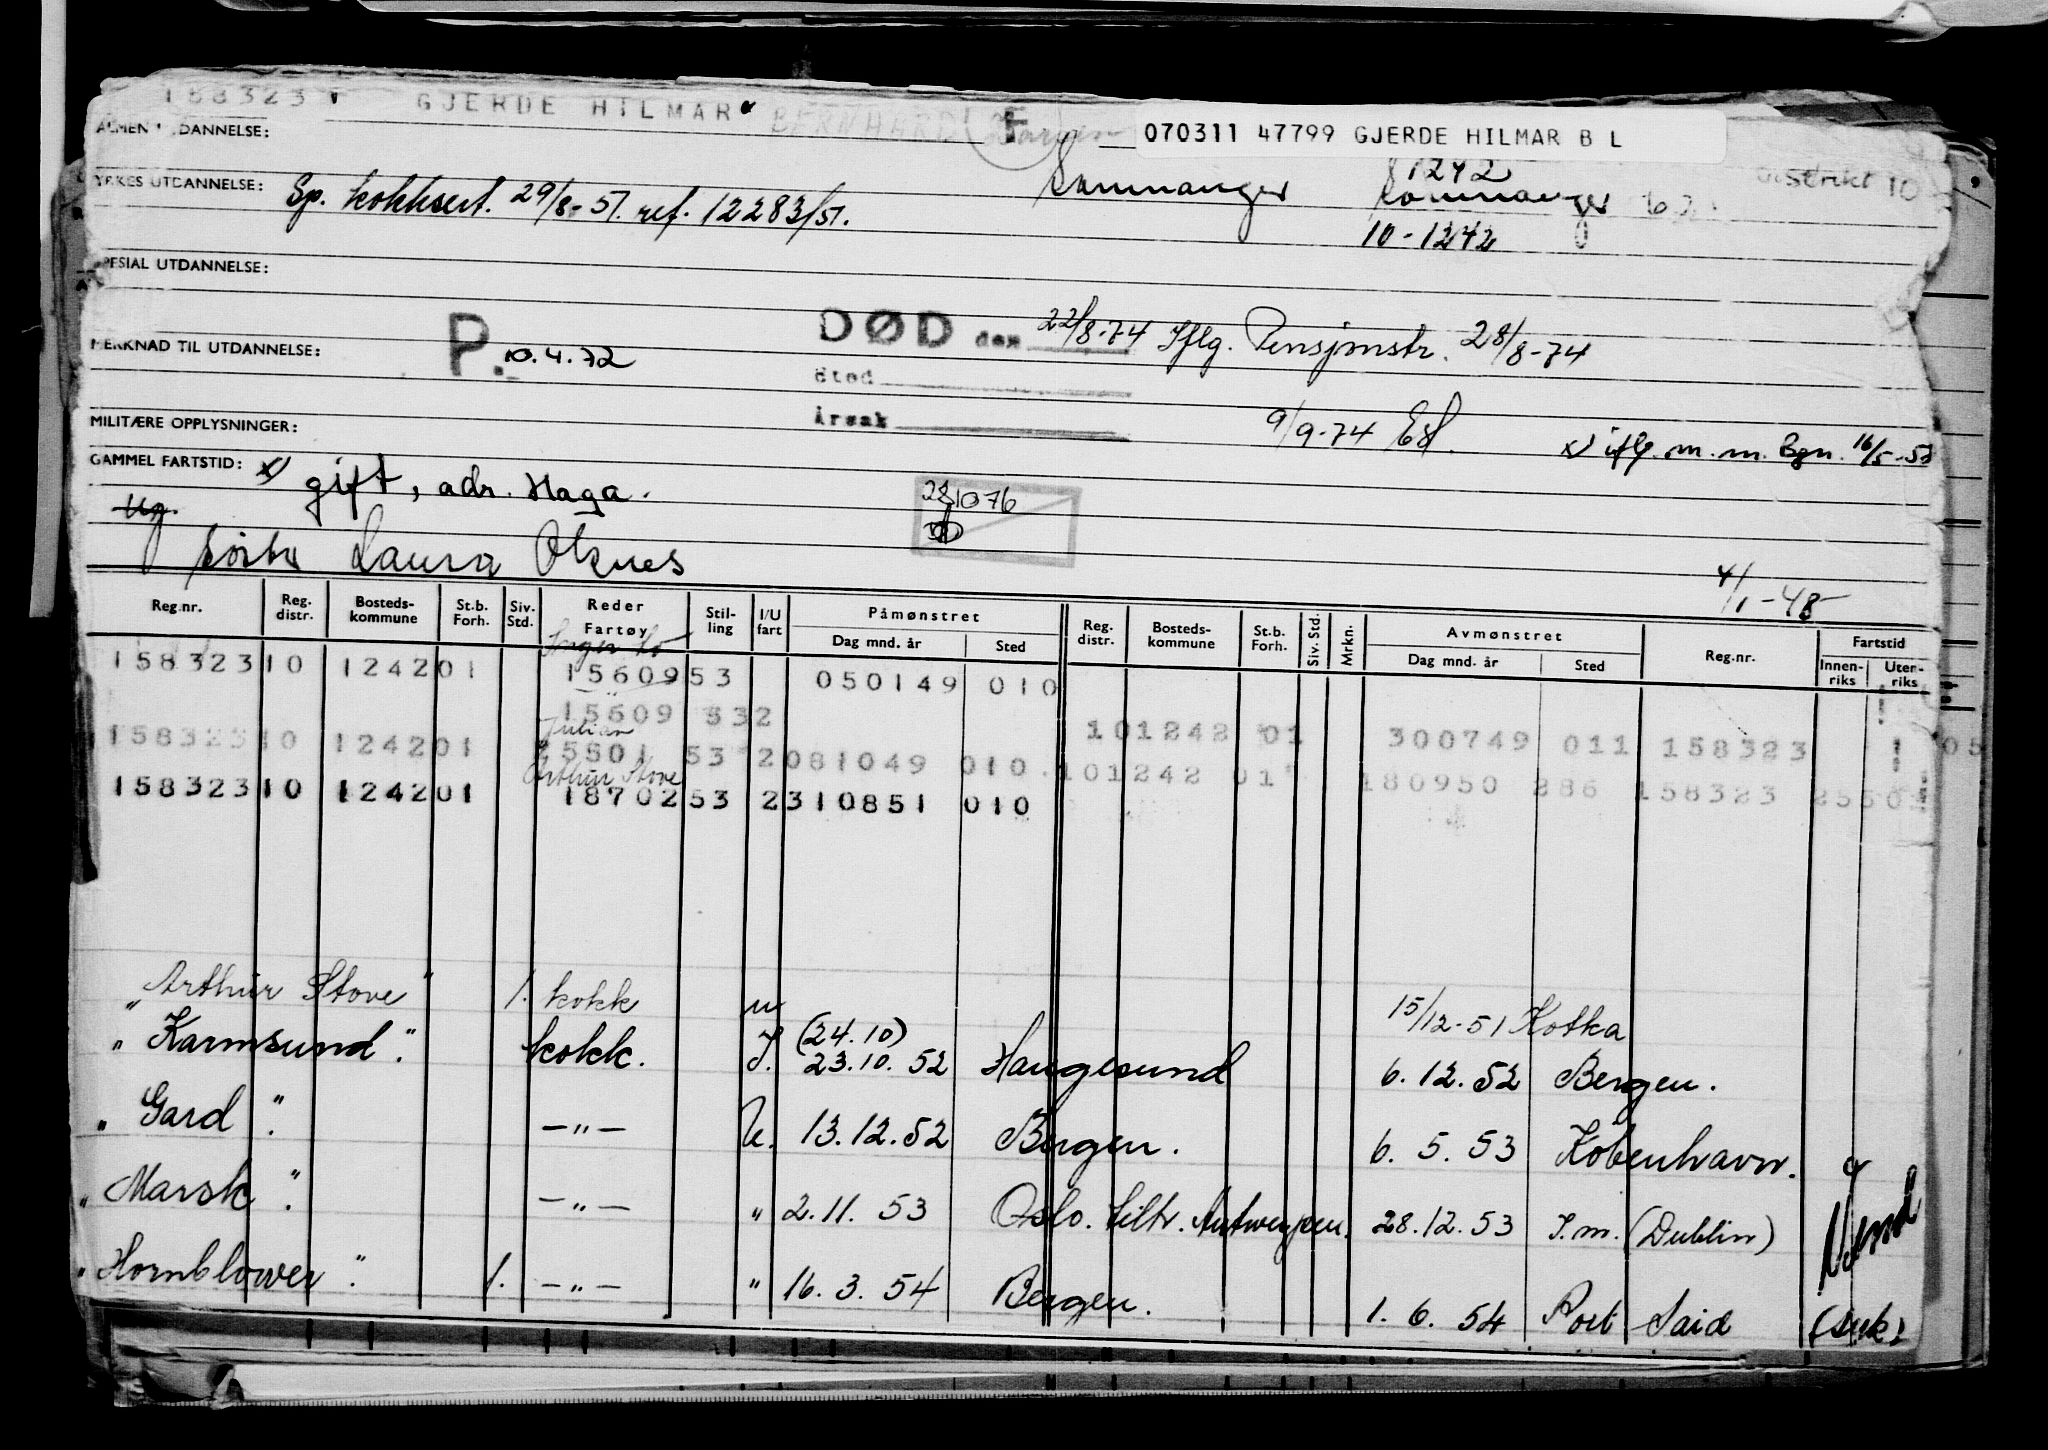 158323 GJERDE HILMAR BERNHARD F 070311 47799 GJERDE HILMAR B L
ALMEN UTDANNELSE:
1242
YRKES UTDANNELSE: Sp. kokksert. 29/8-51. ref. 12283/51. Samnanger Samnanger Distrikt 10
10-1242
SPESIAL UTDANNELSE:
DØD den 22/8-74 Iflg. Pensjonstr. 28/8-74
MERKNAD TIL UTDANNELSE: P. 10.4.72
Sted
Årsak
MILITÆRE OPPLYSNINGER: 9/9-74
x) iflg. m.m. Bgn. 16/5-
GAMMEL FARTSTID: x) gift, adr. Haga.
ug. 28/10 76
Laura
4/1-48
Reg.nr. Reg. distr. Bosteds-kommune St.b. Forh. Siv. Std. Reder Fartøy Stil-ling I/U fart Påmønstret Dag mnd. år Sted Reg. distr. Bosteds-kommune St.b. Forh. Siv. Std. Mrkn. Avmønstret Dag mnd. år Sted Reg.nr. Fartstid Innen-riks Uten-riks
158323 10 1242 01 15609 53 050149 010
15609 532
Julian
158323 10 1242 01 5501 53 2 081049 010 101242 01 300749 011 158323
Arthur Stove 101242 01 180950 286 158323
158323 10 1242 01 18702 53 2 310851 010
"Arthur Stove" 1. kokk u 15/12-51 Kotka
"Karmsund". kokk. I. (24.10) 23.10.52 Haugesund 6.12.52 Bergen.
"Gard" -"- U. 13.12.52 Bergen. 6.5.53 København.
"Marsk". -"- " 2.11.53 Oslo. tiltr. Antwerpen. 28.12.53 I.m. (Dublin)
"Hornblower". 1. -"- " 16.3.54 Bergen. 1.6.54 Port Said (syk)